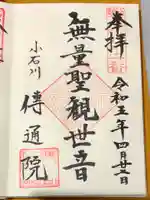 奉拝
令和五年四月廿二日
無量聖観世音
小石川
傳通院